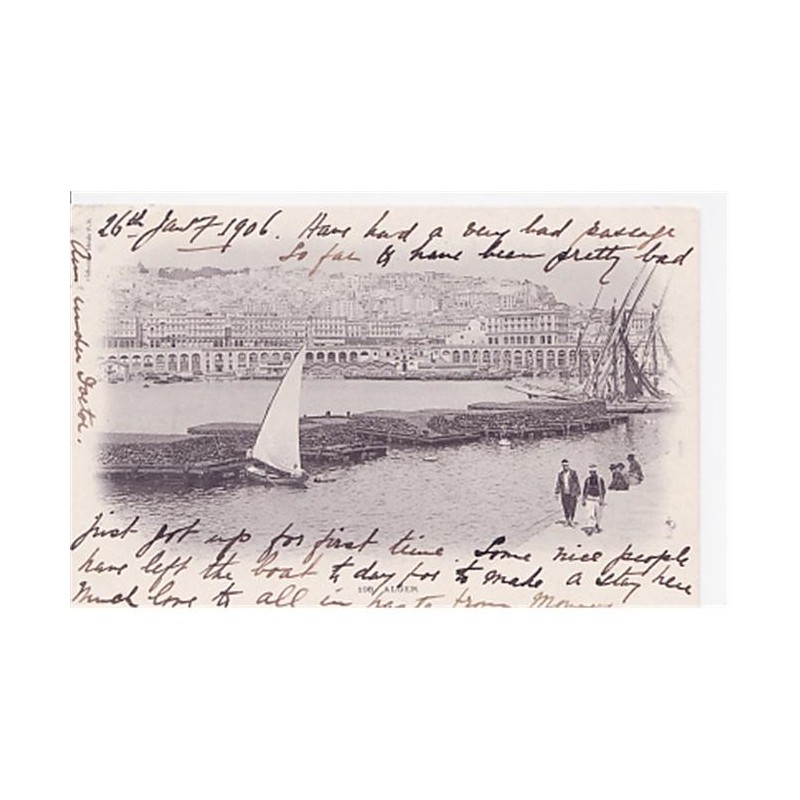 26th Jany 1906. Have had a very bad passage
So far & have been pretty bad
Am under Doctor.
Just got up for first time. Some nice people
have left the boat to day for to make a stay here
Much love to all in haste from
ALGER